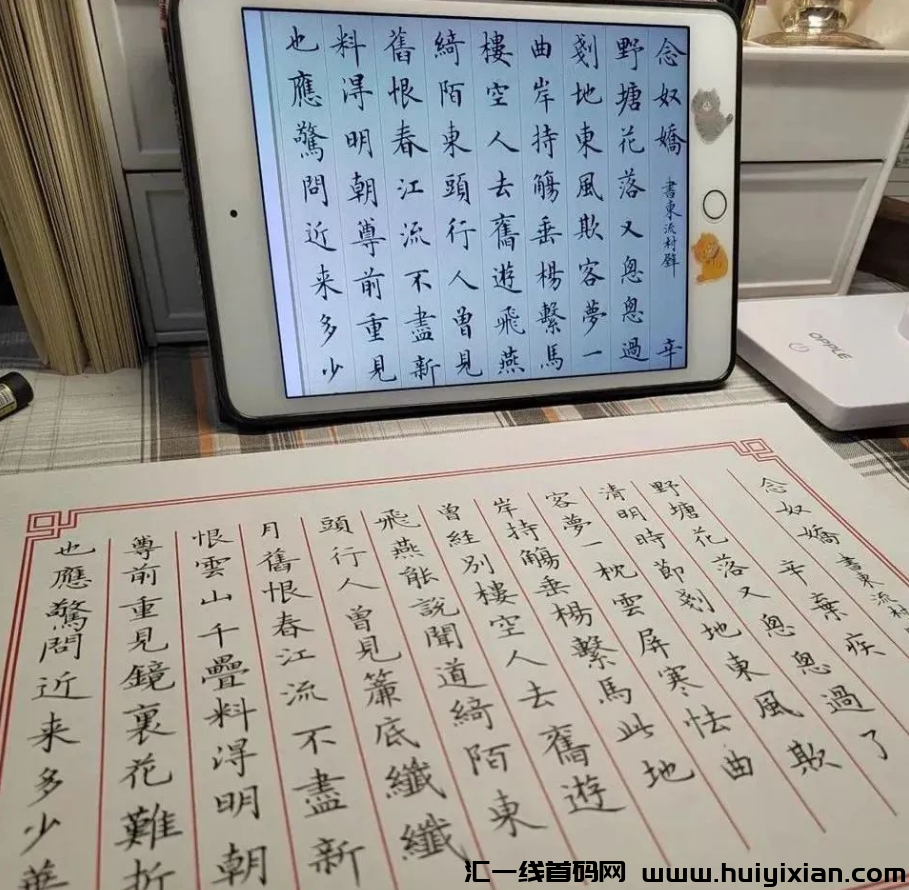 念奴嬌 書東流村壁 辛
野塘花落又悤悤過
剗地東風欺客夢一
曲岸持觴垂楊繫馬
樓空人去舊遊飛燕
綺陌東頭行人曾見
舊恨春江流不盡新
料得明朝尊前重見
也應驚問近来多少
OPPLE
念奴嬌 書東流村
辛棄疾
野塘花落又悤悤過了
清明時節剗地東風欺
客夢一枕雲屏寒怯曲
岸持觴垂楊繫馬此地
曾経別樓空人去舊遊
飛燕能說聞道綺陌東
頭行人曾見簾底纖纖
月舊恨春江流不盡新
恨雲山千疊料得明朝
尊前重見鏡裏花難折
也應驚問近来多少華
汇一线首码网 www.huiyixian.com